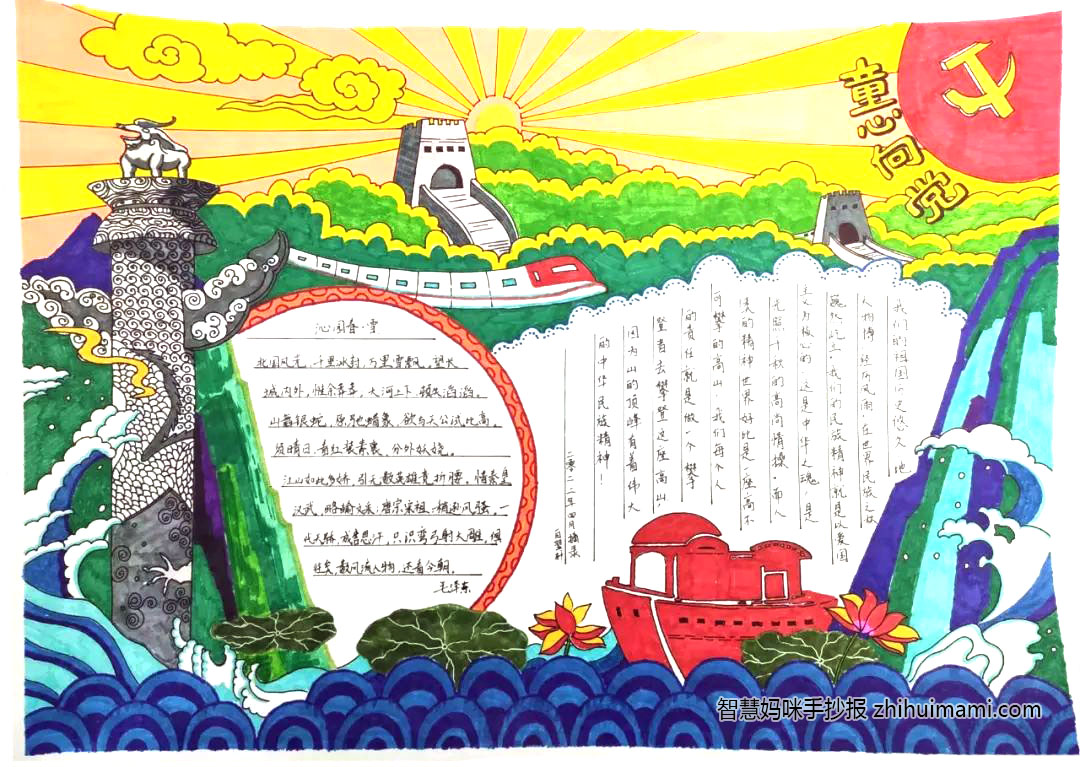 童心向党
沁园春·雪
北国风光,千里冰封,万里雪飘。望长
城内外,惟余莽莽,大河上下,顿失滔滔。
山舞银蛇,原驰蜡象,欲与天公试比高。
须晴日,看红装素裹,分外妖娆。
江山如此多娇,引无数英雄竞折腰,惜秦皇
汉武,略输文采,唐宗宋祖,稍逊风骚。一
代天骄,成吉思汗,只识弯弓射大雕,俱
往矣,数风流人物,还看今朝。
毛泽东
我们的祖国历史悠久,地
大物博,经历风雨,在世界民族之林
巍屹立,我们的民族精神就是以爱国
主义为核心的,这是中华之魂,是
光照千秋的高尚情操,而人
类的精神世界好比是一座高不
可攀的高山,我们每个人
的责任就是做一个攀
登者去攀登这座高山,
因为山的顶峰有着伟大
的中华民族精神!
二零二二年四月摘录
智慧妈咪手抄报 zhihuimami.com